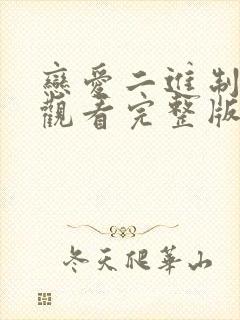 戀愛二進制
觀看完整版
冬天爬華山